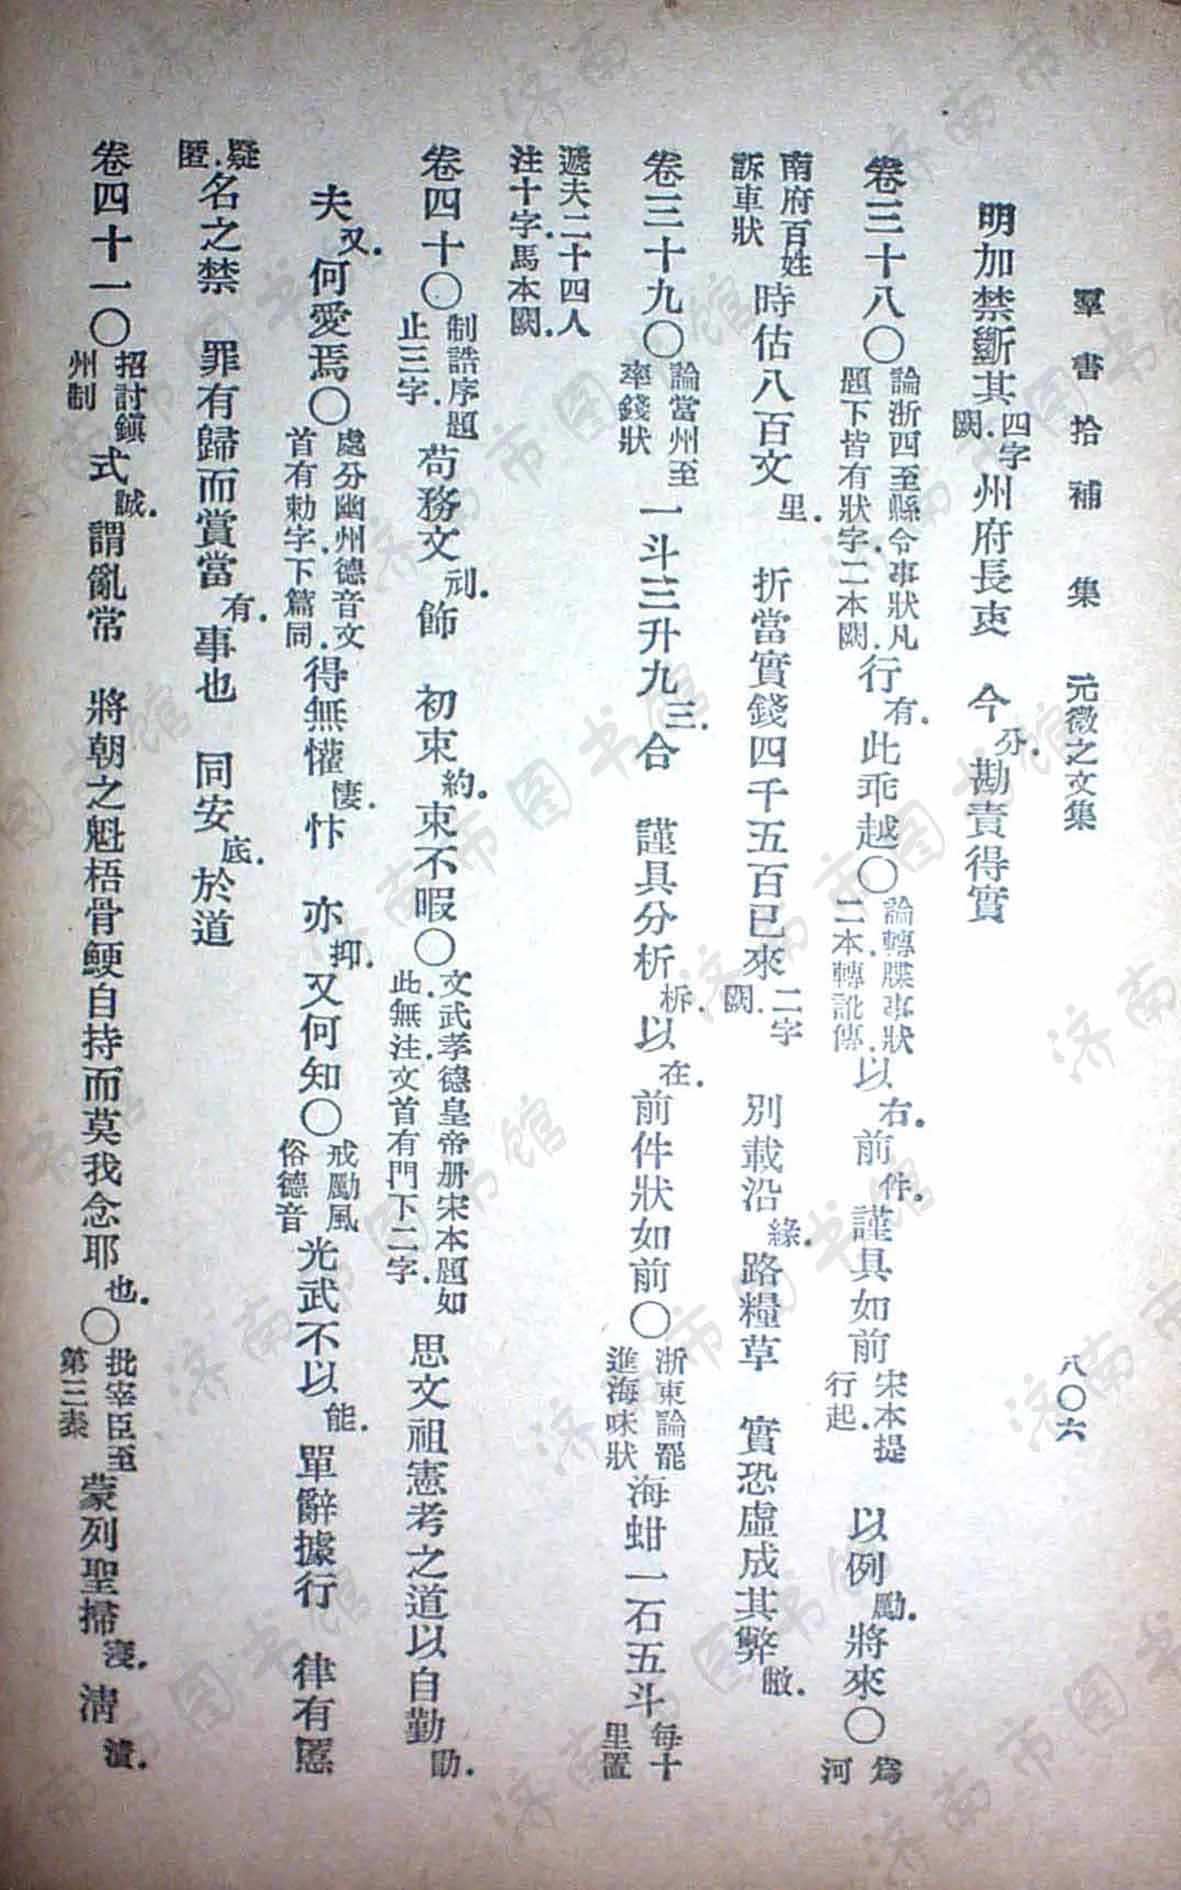 羣書拾補集　元微之文集　八〇六
明加禁斷其四字闕.州府長吏　今分.勘責得實
卷三十八〇論浙西至縣令事狀凡題下皆有狀字.二本闕.行有.此乖越〇論轉牒事狀二本轉訛傳.以右.前件.謹具如前宋本提行起.　以例勵.將來〇爲河
南府百姓訴車狀時估八百文里.　折當實錢四千五百已來二字闕.　別載沿緣.路糧草　實恐虛成其弊敝.
卷三十九〇論當州至率錢狀一斗三升九三.合　謹具分析柝.以在.前件狀如前〇浙東論罷進海味狀海蚶一石五斗每十里置
遞夫二十四人注十字.馬本闕.
卷四十〇制誥序題止三字.苟務文刓.飾　初束約.束不暇〇文武孝德皇帝册宋本題如此.無注.文首有門下二字.　思文祖憲考之道以自勤勖.
夫又.何愛焉〇處分幽州德音文首有勅字.下篇同.得無懽悽.忭　亦抑.又何知〇戒勵風俗德音光武不以能.　單辭據行　律有慝
疑匿.名之禁　罪有歸而賞當有.事也　同安底.於道
卷四十一〇招討鎮州制式誠.謂亂常　將朝之魁梧骨鯁自持而莫我念耶也.〇批宰臣至第三表蒙列聖掃寖.清瀆.